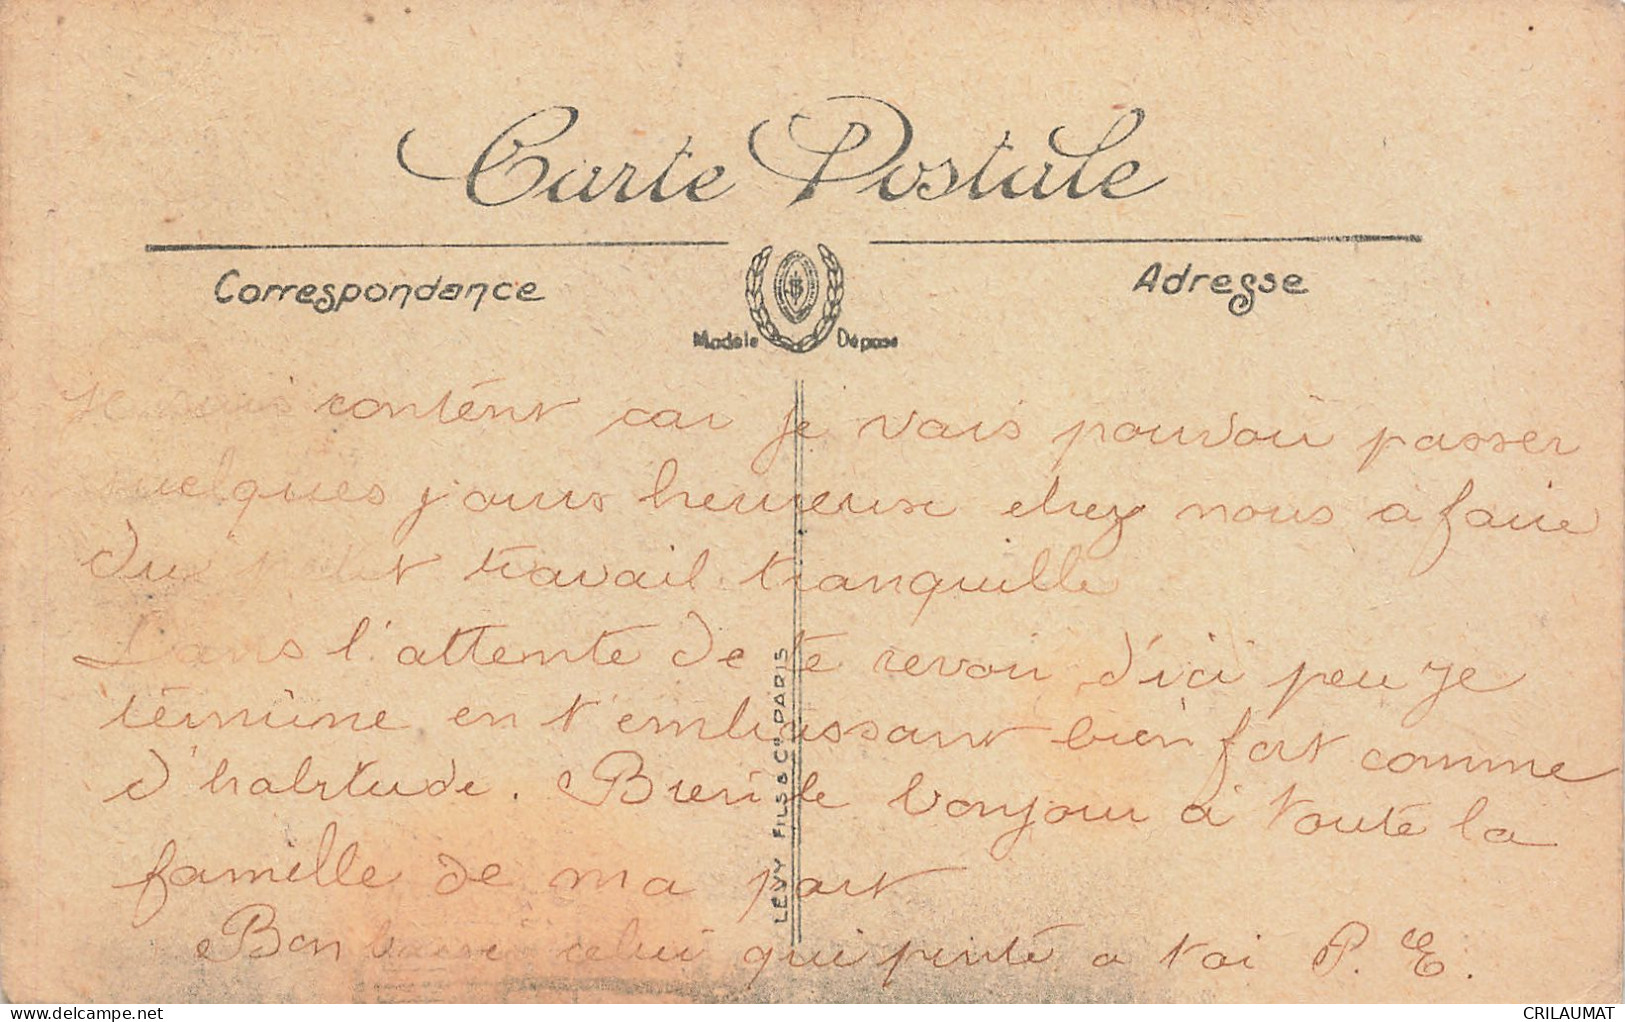 Carte Postale
Correspondance
Adresse
Modèle Déposé
LEVY FILS & Cie PARIS
Je suis contént car je vais pouvoir passer
quelques jours heureux chez nous a faire
du petit travail tranquille
Dans l'attente de te revoir d'ici peu je
términe en t'embrassant bien fort comme
d'habitude. Bien le bonjour à toute la
famille de ma part
Bon baiser celui qui pense a toi P. E.
delcampe.net
CRILAUMAT